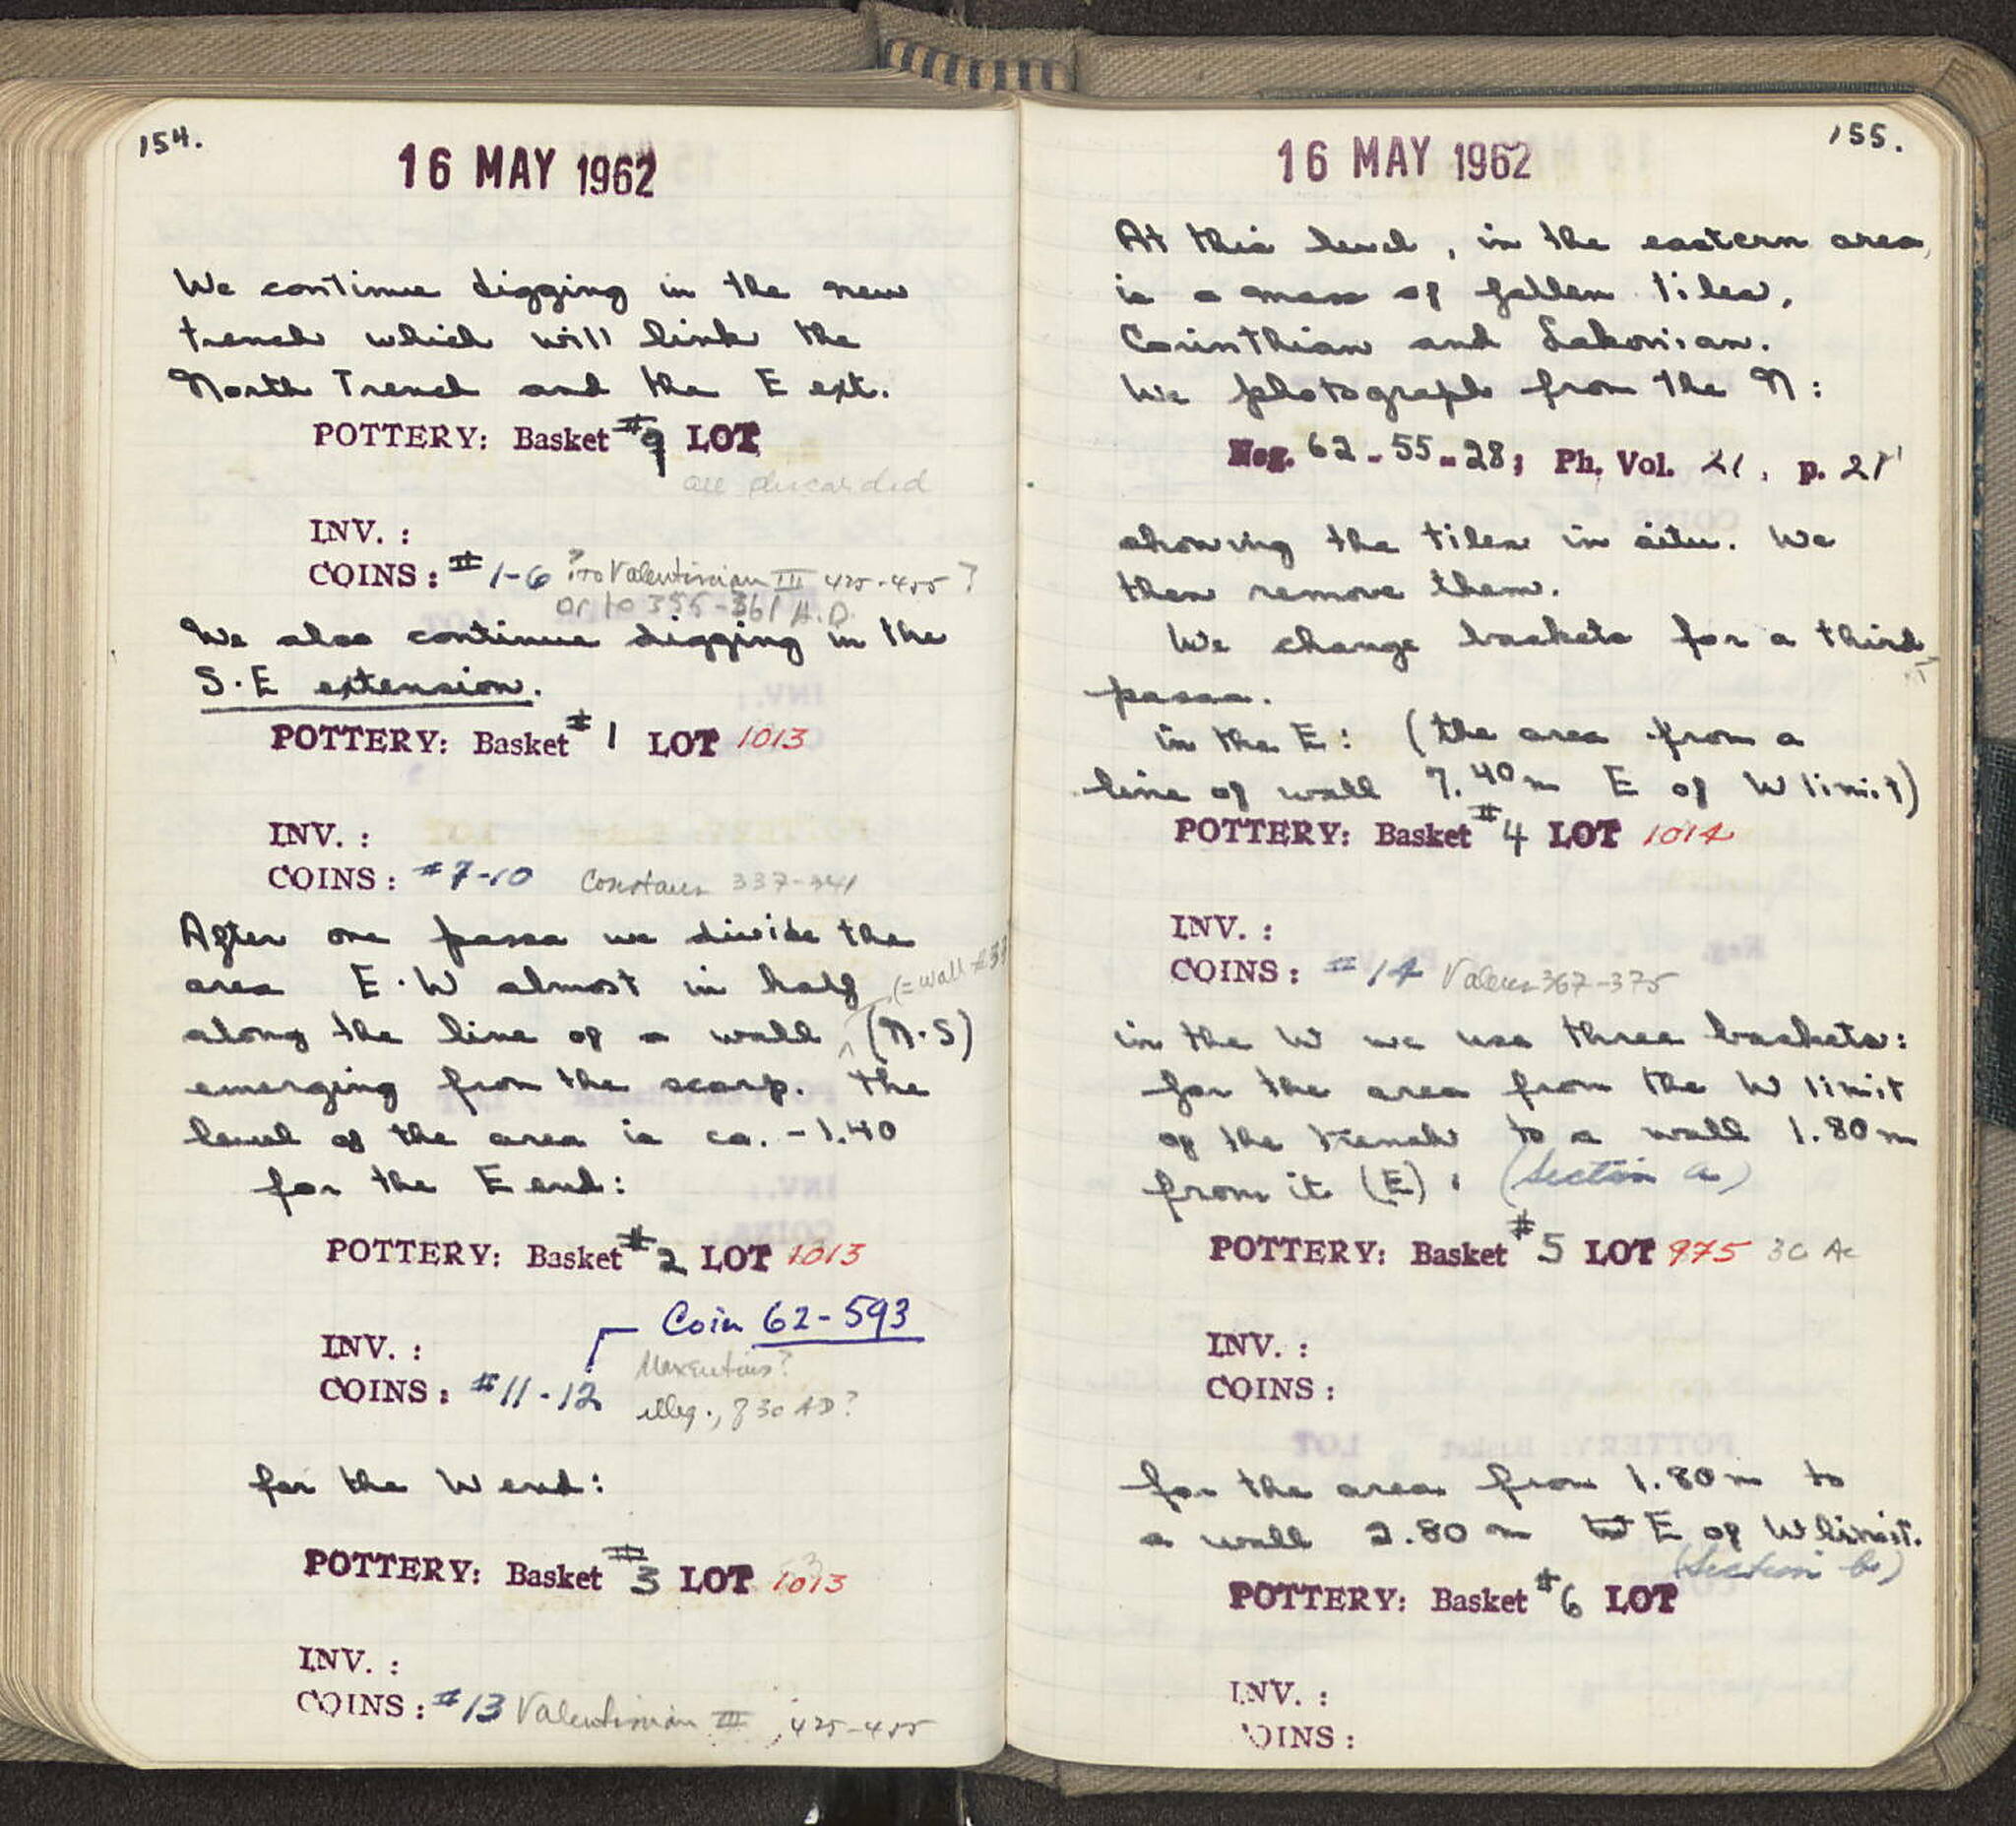 154.
16 MAY 1962
We continue digging in the new
trench which will link the
North Trench and the E ext.
POTTERY: Basket #9 LOT
all discarded
INV. :
COINS: #1-6 ? to Valentinian III 425-455 ?
or to 355-361 A.D.
We also continue digging in the
S.E extension.
POTTERY: Basket #1 LOT 1013
INV. :
COINS: #7-10 Constans 337-341
After one pass we divide the
area E-W almost in half
(= wall #
along the line of a wall (N-S)
emerging from the scarp. The
level of the area is ca. -1.40
for the E end:
POTTERY: Basket #2 LOT 1013
Coin 62-593
INV. :
Maxentius?
COINS: #11-12
illeg., 30 AD?
for the W end:
POTTERY: Basket #3 LOT 1013
INV. :
COINS: #13 Valentinian III, 425-455
155.
16 MAY 1962
At this level, in the eastern area,
is a mass of fallen tiles,
Corinthian and Lakonian.
We photograph from the N:
Neg. 62-55-28; Ph. Vol. 21, p. 21
showing the tiles in situ. We
then remove them.
We change baskets for a third
pass.
in the E: (the area from a
line of wall 7.40m E of W limit)
POTTERY: Basket #4 LOT 1014
INV. :
COINS: #14 Valens 367-375
in the W we use three baskets:
for the area from the W limit
of the trench to a wall 1.80m
from it (E). (Section a)
POTTERY: Basket #5 LOT 975
INV. :
COINS:
for the area from 1.80m to
a wall 2.80m E of W limit.
(Section b)
POTTERY: Basket #6 LOT
INV. :
COINS: